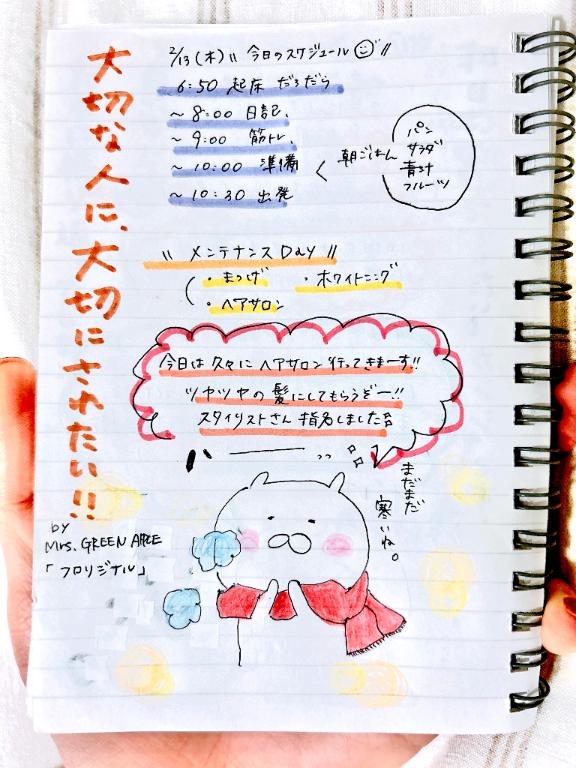 大切な人に、大切にされたい!!
by
Mrs. GREEN APPLE
「フロリジナル」
2/13(木) 〃 今日のスケジュール 〃
6:50 起床 だらだら
~ 8:00 日記、
~ 9:00 筋トレ、
~ 10:00 準備 < 朝ごはん
~ 10:30 出発
パン
サラダ
青汁
フルーツ
〃 メンテナンス Day 〃
・まつげ ・ホワイトニング
・ヘアサロン
今日は久々にヘアサロン行ってきまーす!!
ツヤツヤの髪にしてもらうぞー!!
スタイリストさん指名しました
まだまだ
寒いね。